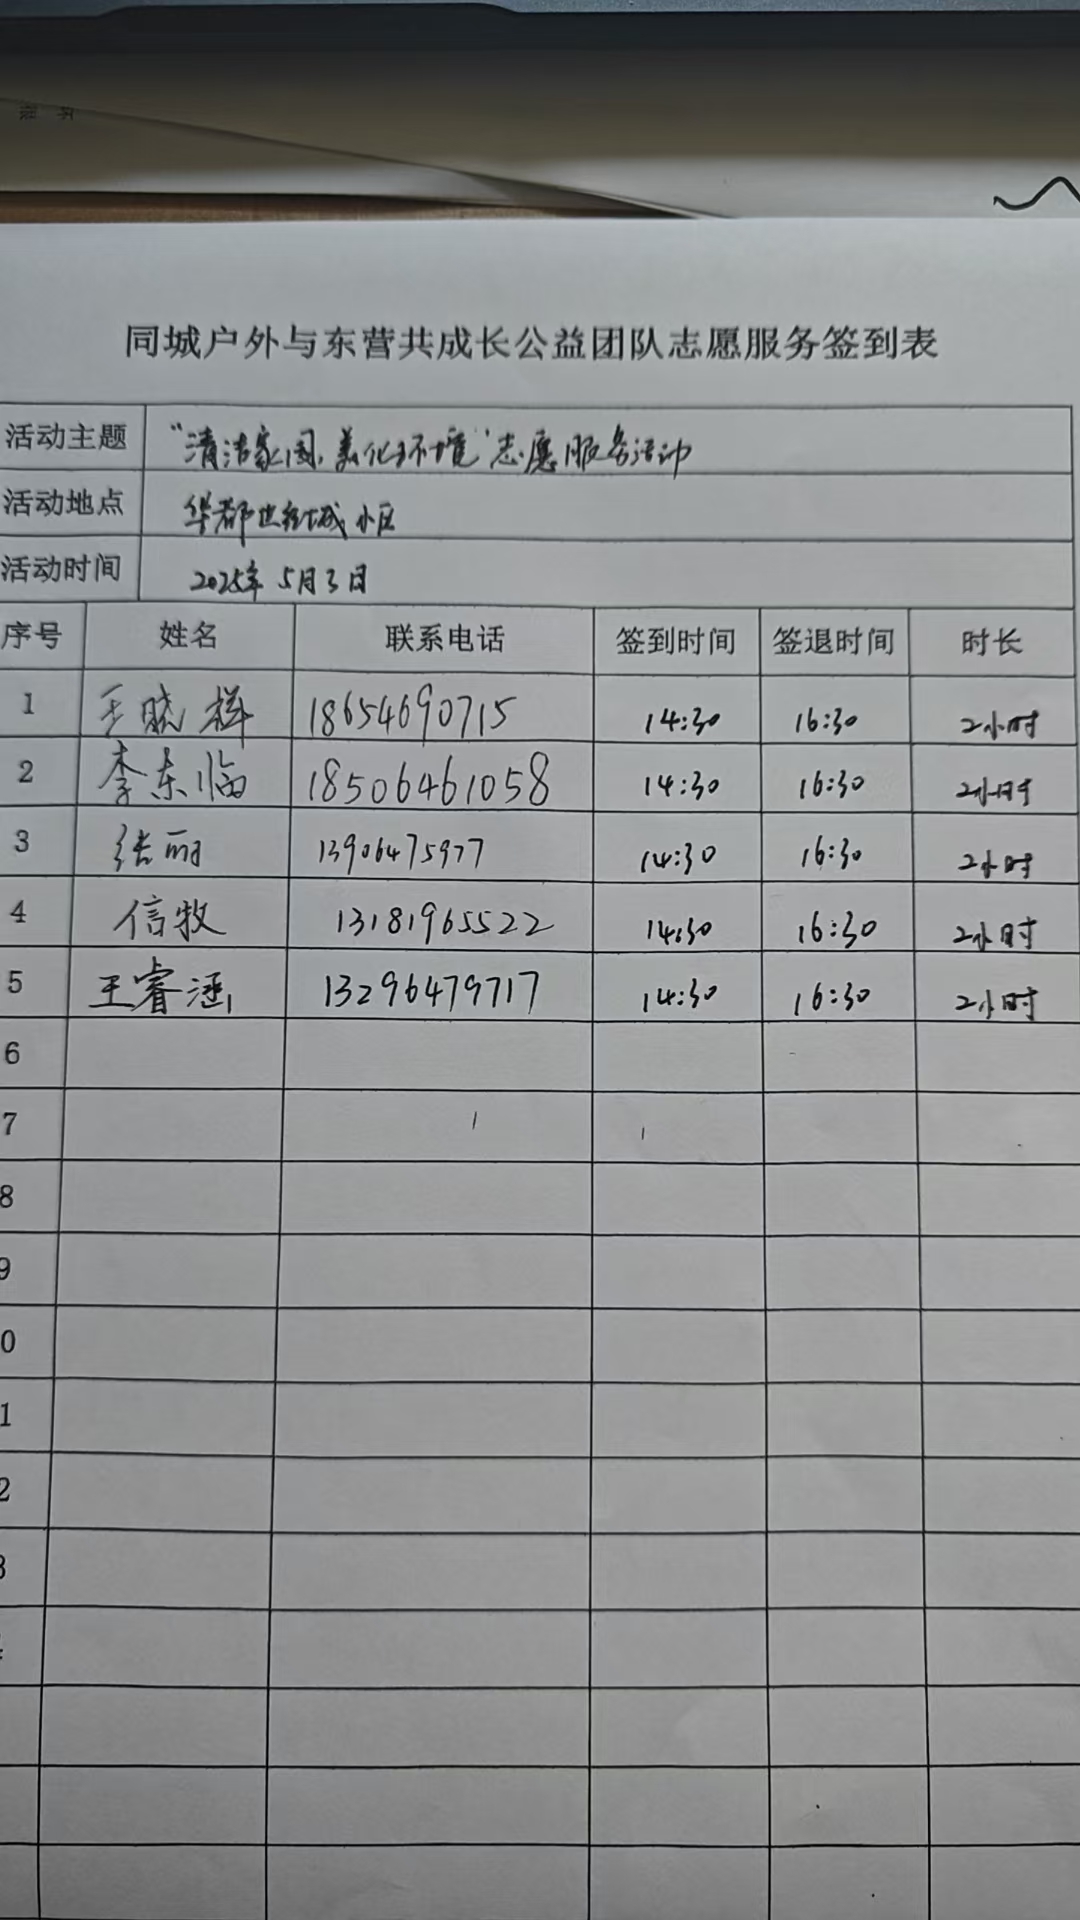 同城户外与东营共成长公益团队志愿服务签到表
活动主题 “清洁家园,美化环境”志愿服务活动
活动地点 华都世纪城小区
活动时间 2025年5月3日
序号 姓名 联系电话 签到时间 签退时间 时长
1 王晓辉 18654690715 14:30 16:30 2小时
2 李东临 18506461058 14:30 16:30 2小时
3 张丽 13906475977 14:30 16:30 2小时
4 信牧 13181965522 14:30 16:30 2小时
5 王睿涵 13296479717 14:30 16:30 2小时
6
7
8
9
0
1
2
3